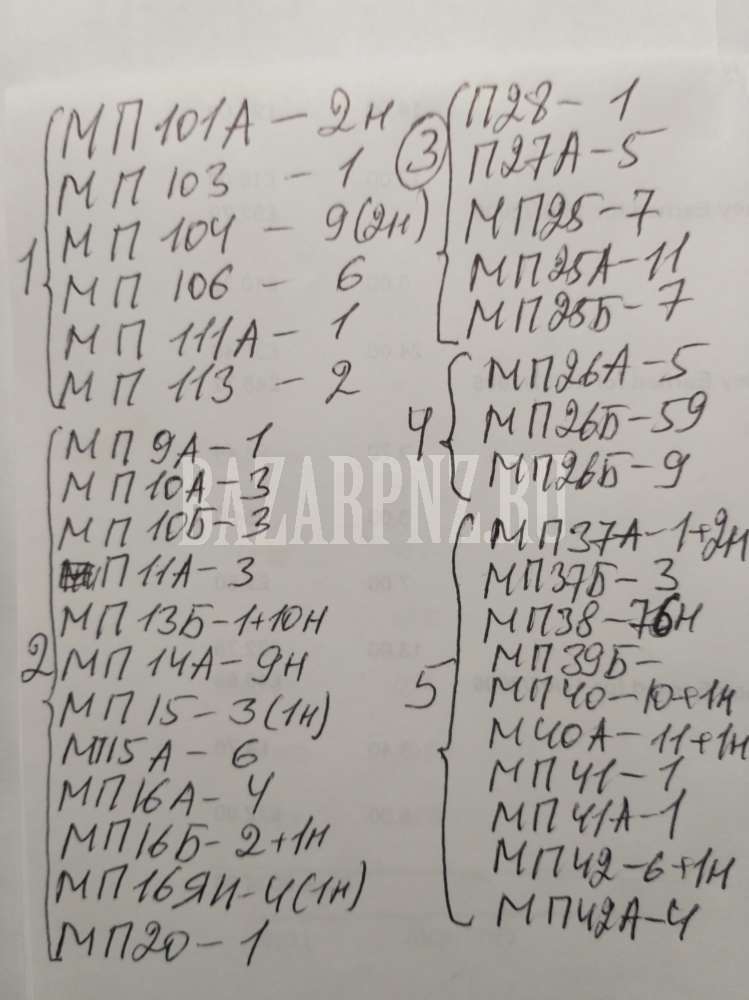 1
МП101А - 2н
МП 103 - 1
МП 104 - 9(2н)
МП 106 - 6
МП 111А - 1
МП 113 - 2
2
МП 9А - 1
МП 10А - 3
МП 10Б - 3
П 11А - 3
МП 13Б - 1+10н
МП 14А - 9н
МП 15 - 3(1н)
МП15А - 6
МП16А - 4
МП16Б - 2+1н
МП16ЯИ - 4(1н)
МП20 - 1
3
П28 - 1
П27А - 5
МП25 - 7
МП25А - 11
МП25Б - 7
4
МП26А - 5
МП26Б - 59
МП26Б - 9
5
МП37А - 1+2н
МП37Б - 3
МП38 - 6н
МП39Б -
МП40 - 10+1н
М40А - 11+1н
МП41 - 1
МП41А - 1
МП42 - 6+1н
МП42А - 4
BAZARPNZ.RU